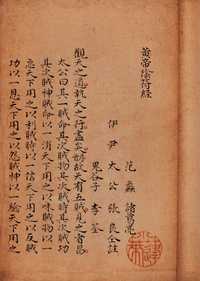 黃帝陰符經
范蠡 諸葛亮
伊尹 太公 張良 仝註
鬼谷子 李筌
觀天之道執天之行盡矣故天有五賊見之者昌
太公曰其一賊命其次賊物其次賊時其次賊功
其次賊神賊命以一消天下用之以味賊物以一
急天下用之以利賊時以一信天下用之以反賊
功以一恩天下用之以怨賊神以一驗天下用之